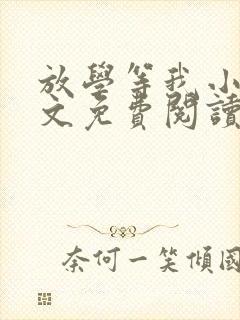 放學等我 小
文免費閱讀
奈何一笑傾國